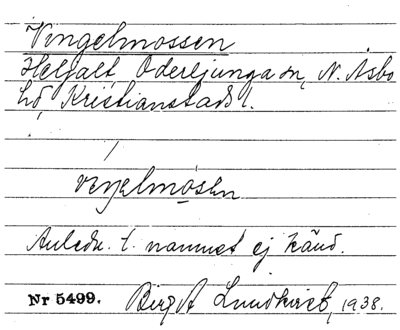 Vingelmossen
Helgalt, Oderljunga sn, N. Åsbo
hd, Kristianstads l.
Anledn. t. namnet ej känd.
Nr 5499. Birgit Lundkvist, 1938.